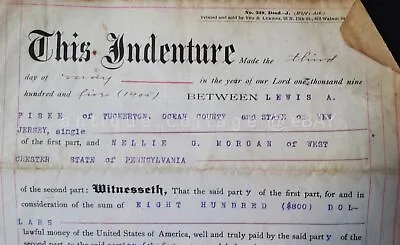 No. 320, Deed—J.
Printed and sold by Yeo & Lukens, N. 13th St., 613 Walnut St.
This Indenture Made the third
day of May in the year of our Lord one thousand nine
hundred and five (1905) BETWEEN LEWIS A.
FISKE of TUCKERTON, OCEAN COUNTY and STATE OF NEW
JERSEY, single
of the first part, and NELLIE G. MORGAN OF WEST
CHESTER STATE OF PENNSYLVANIA
of the second part: Witnesseth, That the said party of the first part, for and in
consideration of the sum of EIGHT HUNDRED ($800) DOL-
LARS
lawful money of the United States of America, well and truly paid by the said party
of the second part to the said